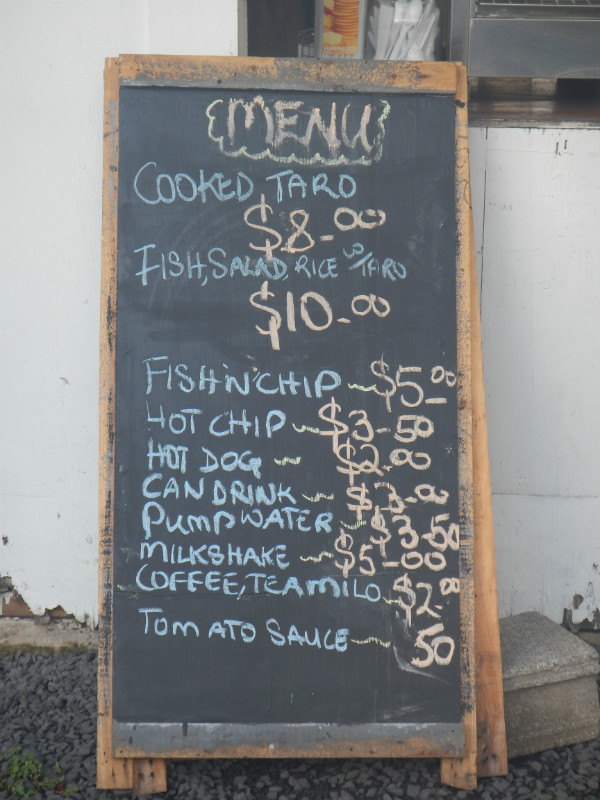 MENU
COOKED TARO
$8-00
FISH, SALAD, RICE W/TARO
$10-00
FISH'N'CHIP ~ $5-00
HOT CHIP ~ $3-50
HOT DOG ~ $2-00
CAN DRINK ~ $3-00
PUMP WATER ~ $3-50
MILKSHAKE ~ $5-00
COFFEE, TEA MILO ~ $2-00
TOMATO SAUCE ~ 50